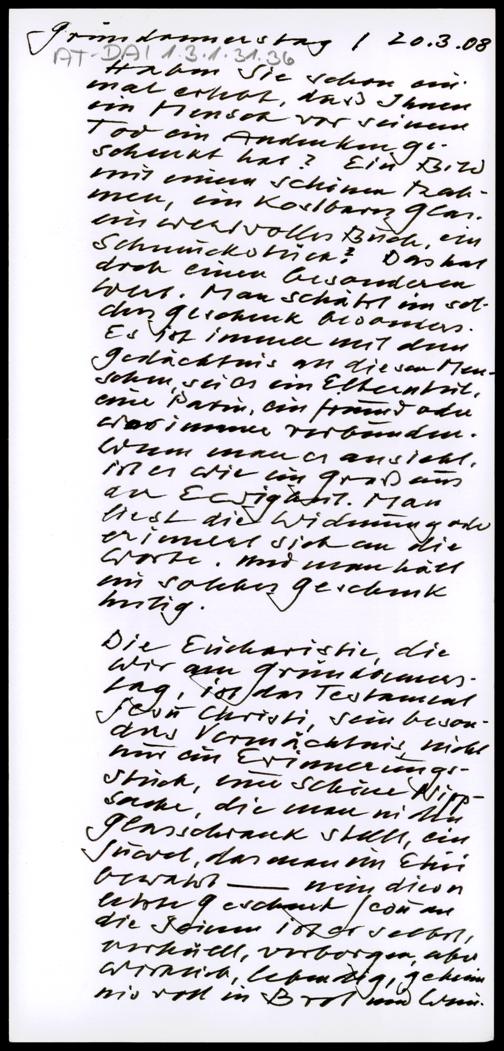 Gründonnerstag / 20.3.08
AT-DAI 1.3.1.31.36
Haben Sie schon ein-
mal erlebt, daß Ihnen
ein Mensch vor seinem
Tod ein Andenken ge-
schenkt hat? Ein Bild
mit einem schönen Rah-
men, ein kostbares Glas,
ein wertvolles Buch, ein
Schmuckstück? Das hat
doch einen besonderen
Wert. Man schätzt ein sol-
ches Geschenk besonders.
Es ist immer mit dem
Gedächtnis an diesen Men-
schen, sei es ein Elternteil,
eine Patin, ein Freund oder
wer immer verbunden.
Wenn man es ansieht,
ist es wie ein Gruß aus
der Ewigkeit. Man
liest die Widmung oder
erinnert sich an die
Worte. Und man hält
ein solches Geschenk
heilig.
Die Eucharistie, die
wir am Gründonners-
tag, ist das Testament
Jesu Christi, sein beson-
deres Vermächtnis, nicht
nur ein Erinnerungs-
stück, eine schöne Nipp-
sache, die man in den
Glasschrank stellt, ein
Juwel, das man im Etui
bewahrt — nein dieses
letzte Geschenk Jesu an
die Seinen ist er selbst,
verhüllt, verborgen, aber
wirklich, lebendig, geheim
nisvoll in Brot und Wein.